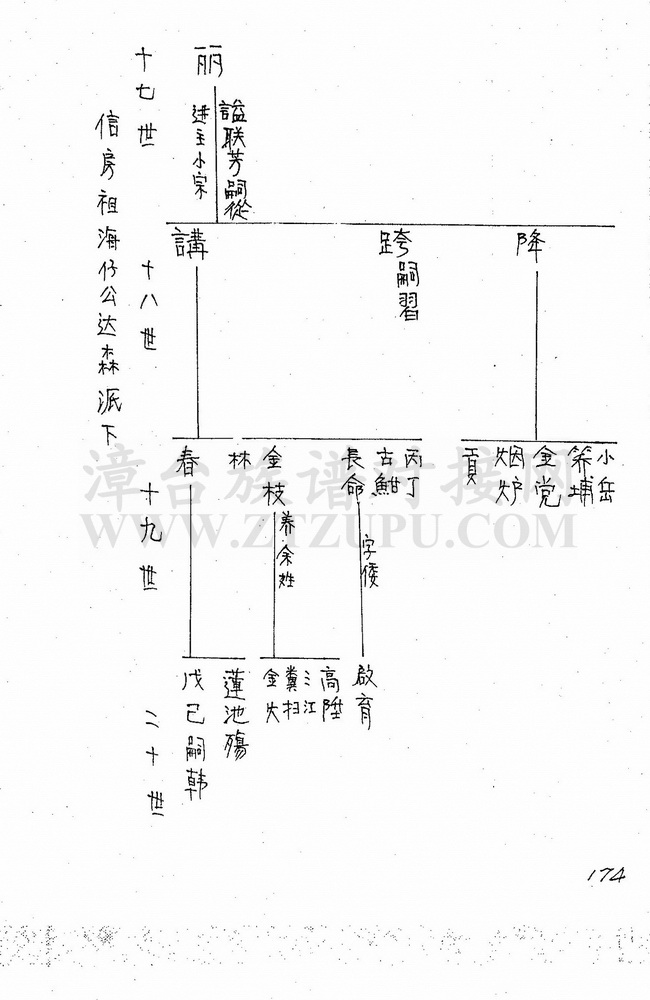 信房祖海仔公达森派下
十七世
丽
諡联芳嗣從
进主小宗
十八世
降
跨嗣習
講
十九世
小岳
笫埔
金党
烟炉
貢
丙丁
古魽
長命
字倭
金枝
养余姓
林
春
二十世
啟育
高陞
三江
糞扫
金火
蓮池殤
戊己嗣韩
174
漳台族谱对接网
WWW.ZTZUPU.COM